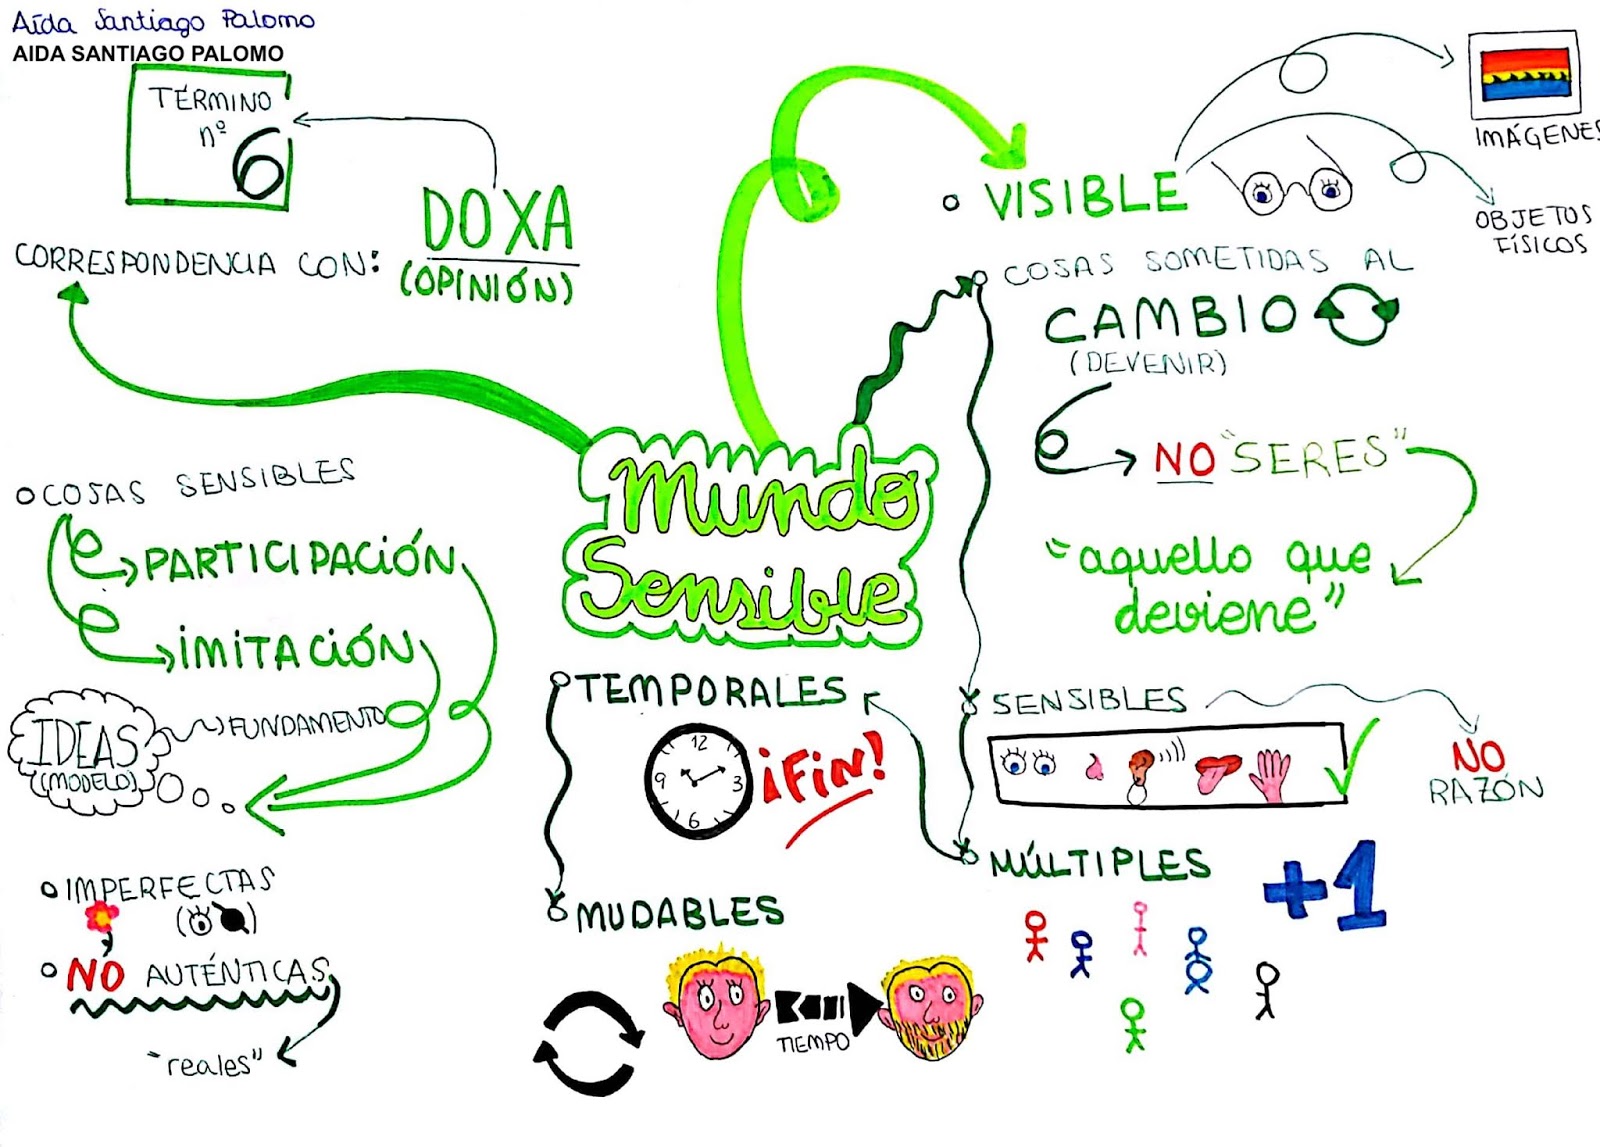 Aída Santiago Palomo
AIDA SANTIAGO PALOMO
TÉRMINO
nº
6
DOXA
(OPINIÓN)
CORRESPONDENCIA CON:
VISIBLE
IMÁGENES
OBJETOS
FÍSICOS
COSAS SOMETIDAS AL
CAMBIO
(DEVENIR)
NO "SERES"
"aquello que
deviene"
Mundo
Sensible
COSAS SENSIBLES
PARTICIPACIÓN
IMITACIÓN
FUNDAMENTO
IDEAS
(MODELO)
IMPERFECTAS
NO AUTÉNTICAS
"reales"
TEMPORALES
12
9
3
6
¡FIN!
MUDABLES
TIEMPO
SENSIBLES
NO
RAZÓN
MÚLTIPLES
+1